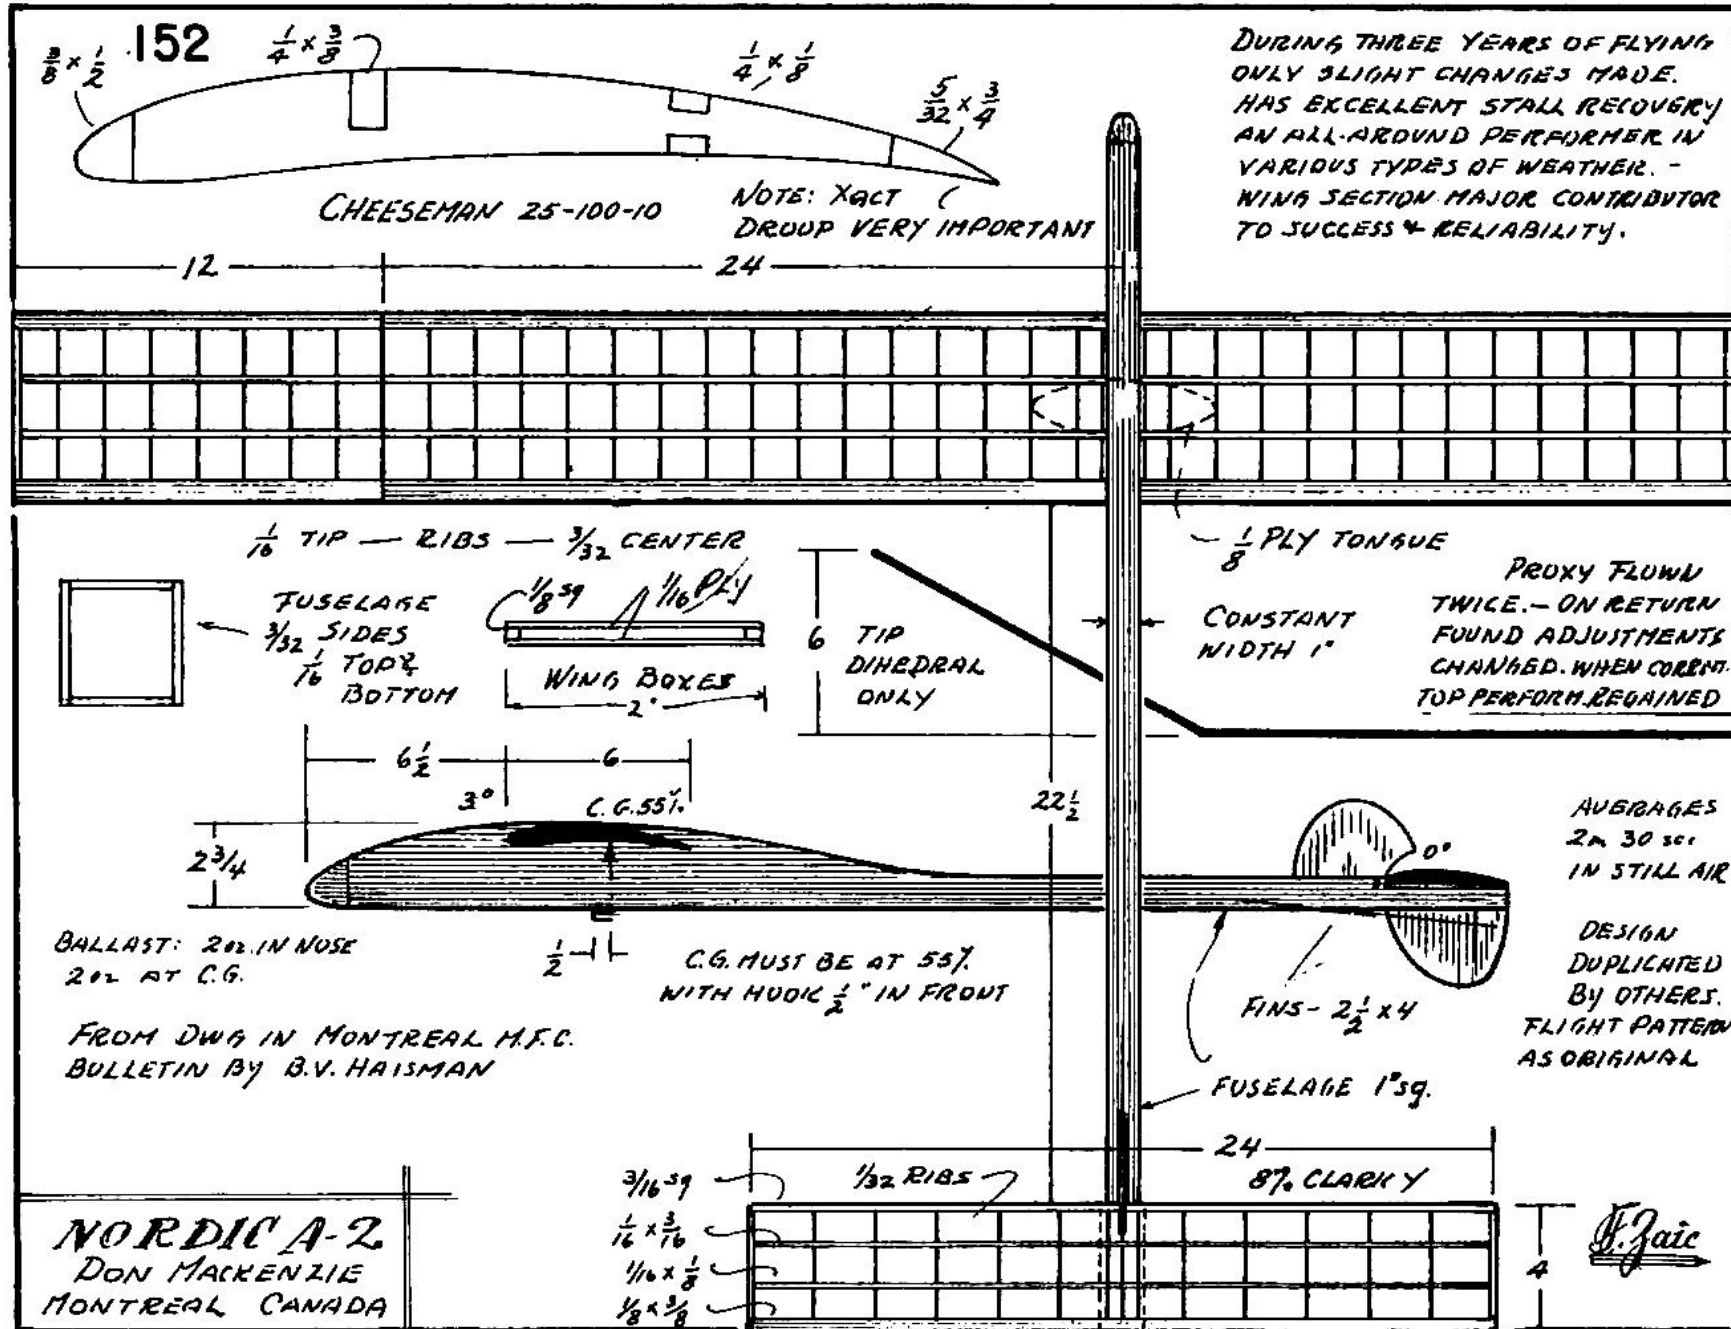 152
3/8 x 1/2
1/4 x 3/8
1/4 x 1/8
5/32 x 3/4
CHEESEMAN 25-100-10
NOTE: XACT
DROUP VERY IMPORTANT
DURING THREE YEARS OF FLYING
ONLY SLIGHT CHANGES MADE.
HAS EXCELLENT STALL RECOVERY
AN ALL-AROUND PERFORMER IN
VARIOUS TYPES OF WEATHER. -
WING SECTION MAJOR CONTRIBUTOR
TO SUCCESS & RELIABILITY.
12
24
1/16 TIP — RIBS — 3/32 CENTER
1/8 PLY TONGUE
FUSELAGE
3/32 SIDES
1/16 TOP &
BOTTOM
1/8 sq
1/16 PLY
WING BOXES
2"
6
TIP
DIHEDRAL
ONLY
CONSTANT
WIDTH 1"
PROXY FLOWN
TWICE. - ON RETURN
FOUND ADJUSTMENTS
CHANGED. WHEN
TOP PERFORM. REGAINED
6 1/2
6
3°
C.G. 55%
2 3/4
22 1/2
0°
AVERAGES
2m 30 sec
IN STILL AIR
BALLAST: 2oz. IN NOSE
2oz AT C.G.
1/2
C.G. MUST BE AT 55%
WITH HOOK 1/2" IN FRONT
FINS - 2 1/2 x 4
DESIGN
DUPLICATED
BY OTHERS.
FLIGHT PATTERN
AS ORIGINAL
FROM DWG IN MONTREAL M.F.C.
BULLETIN BY B.V. HAISMAN
FUSELAGE 1" sq.
24
3/16 sq
1/32 RIBS
8% CLARK Y
1/16 x 3/16
1/16 x 1/8
1/8 x 3/8
4
NORDIC A-2
DON MACKENZIE
MONTREAL CANADA
F. Zaic